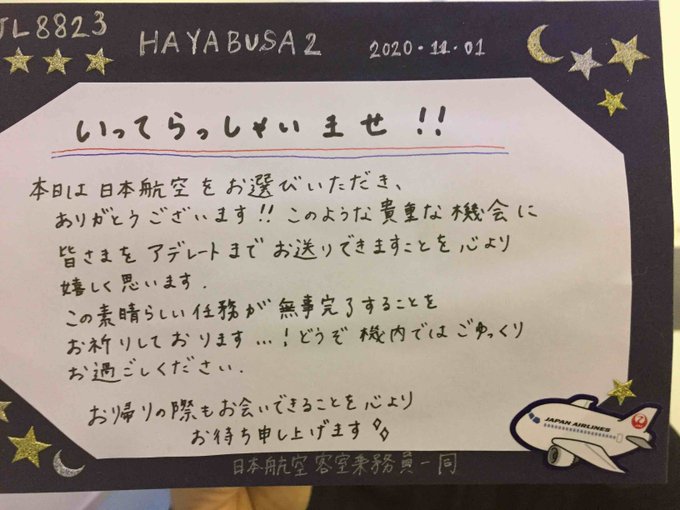 JL8823
HAYABUSA2
2020.11.01
いってらっしゃいませ!!
本日は日本航空をお選びいただき、
ありがとうございます!!このような貴重な機会に
皆さまをアデレートまでお送りできますことを心より
嬉しく思います.
この素晴らしい任務が無事完了することを
お祈りしております...!どうぞ機内ではごゆっくり
お過ごしください.
お帰りの際もお会いできることを心より
お待ち申し上げます
JAPAN AIRLINES
日本航空客室乗務員一同